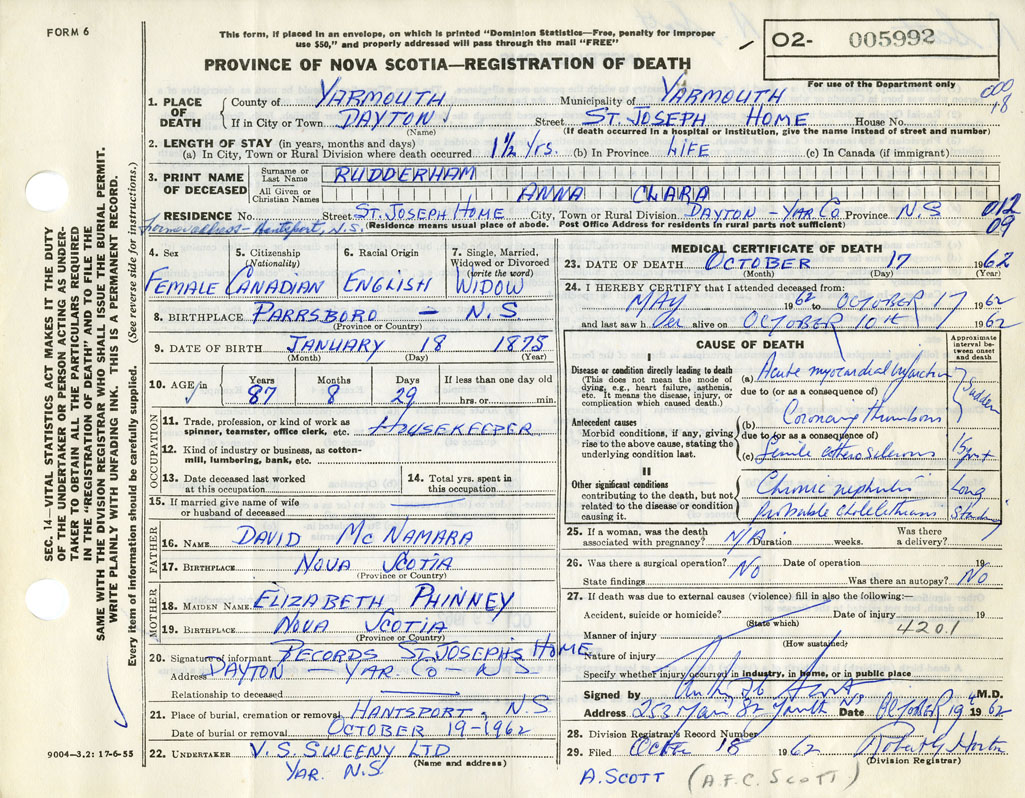 FORM 6
This form, if placed in an envelope, on which is printed "Dominion Statistics—Free, penalty for improper
use $50," and properly addressed will pass through the mail "FREE"
PROVINCE OF NOVA SCOTIA—REGISTRATION OF DEATH
O2- 005992
For use of the Department only
1. PLACE OF DEATH { County of YARMOUTH Municipality of YARMOUTH
If in City or Town DAYTON Street ST. JOSEPH HOME House No.
(Name) (If death occurred in a hospital or institution, give the name instead of street and number)
2. LENGTH OF STAY (in years, months and days)
(a) In City, Town or Rural Division where death occurred 1½ Yrs. (b) In Province LIFE (c) In Canada (if immigrant)
3. PRINT NAME OF DECEASED { Surname or Last Name RUDDERHAM
All Given or Christian Names ANNA CLARA
RESIDENCE No. Street ST. JOSEPH HOME City, Town or Rural Division DAYTON - YAR. CO. Province N.S
012
09
Former address - Hantsport, N.S. (Residence means usual place of abode. Post Office Address for residents in rural parts not sufficient)
4. Sex 5. Citizenship (Nationality) 6. Racial Origin 7. Single, Married, Widowed or Divorced (write the word)
FEMALE CANADIAN ENGLISH WIDOW
8. BIRTHPLACE PARRSBORO - N.S.
(Province or Country)
9. DATE OF BIRTH JANUARY 18 1875
(Month) (Day) (Year)
10. AGE in Years Months Days If less than one day old
87 8 29 hrs. or min.
OCCUPATION
11. Trade, profession, or kind of work as
spinner, teamster, office clerk, etc. HOUSEKEEPER
12. Kind of industry or business, as cotton-
mill, lumbering, bank, etc.
13. Date deceased last worked at this occupation 14. Total yrs. spent in this occupation
15. If married give name of wife
or husband of deceased
FATHER
16. NAME DAVID MCNAMARA
17. BIRTHPLACE NOVA SCOTIA
(Province or Country)
MOTHER
18. MAIDEN NAME ELIZABETH PHINNEY
19. BIRTHPLACE NOVA SCOTIA
(Province or Country)
20. Signature of informant RECORDS ST. JOSEPH'S HOME
Address DAYTON - YAR. CO - N S
Relationship to deceased
21. Place of burial, cremation or removal HANTSPORT. N.S
Date of burial or removal OCTOBER 19-1962
22. UNDERTAKER V.S. SWEENY LTD
(Name and address)
YAR. N.S.
MEDICAL CERTIFICATE OF DEATH
23. DATE OF DEATH OCTOBER 17 1962
(Month) (Day) (Year)
24. I HEREBY CERTIFY that I attended deceased from:
MAY 1962 to OCTOBER 17 1962
and last saw her alive on OCTOBER 10th 1962
CAUSE OF DEATH
Approximate interval between onset and death
I
Disease or condition directly leading to death
(This does not mean the mode of dying, e.g., heart failure, asthenia, etc. It means the disease, injury, or complication which caused death.)
(a) Acute myocardial infarction
due to (or as a consequence of)
Sudden
Antecedent causes
Morbid conditions, if any, giving rise to the above cause, stating the underlying condition last.
(b) Coronary thrombosis
due to (or as a consequence of)
(c) Senile
II
Other significant conditions
contributing to the death, but not related to the disease or condition causing it.
Chronic nephritis Long
Probable cholelithiasis Standing
25. If a woman, was the death associated with pregnancy? N/A Duration weeks. Was there a delivery?
26. Was there a surgical operation? No Date of operation 19
State findings Was there an autopsy? No
27. If death was due to external causes (violence) fill in also the following:—
Accident, suicide or homicide? Date of injury 19
(State which) 4201
Manner of injury
(How sustained)
Nature of injury
Specify whether injury occurred in industry, in home, or in public place
Signed by M.D.
Address 253 Main St Date OCTOBER 19th 1962
28. Division Registrar's Record Number
29. Filed Octbr 18 1962 Robert G Horton
(Division Registrar)
A. SCOTT (A.F.C. SCOTT)
SEC. 14—VITAL STATISTICS ACT MAKES IT THE DUTY
OF THE UNDERTAKER OR PERSON ACTING AS UNDER-
TAKER TO OBTAIN ALL THE PARTICULARS REQUIRED
IN THE "REGISTRATION OF DEATH" AND TO FILE THE
SAME WITH THE DIVISION REGISTRAR WHO SHALL ISSUE THE BURIAL PERMIT.
WRITE PLAINLY WITH UNFADING INK. THIS IS A PERMANENT RECORD.
Every item of information should be carefully supplied. (See reverse side for instructions.)
9004—3,2: 17-6-55